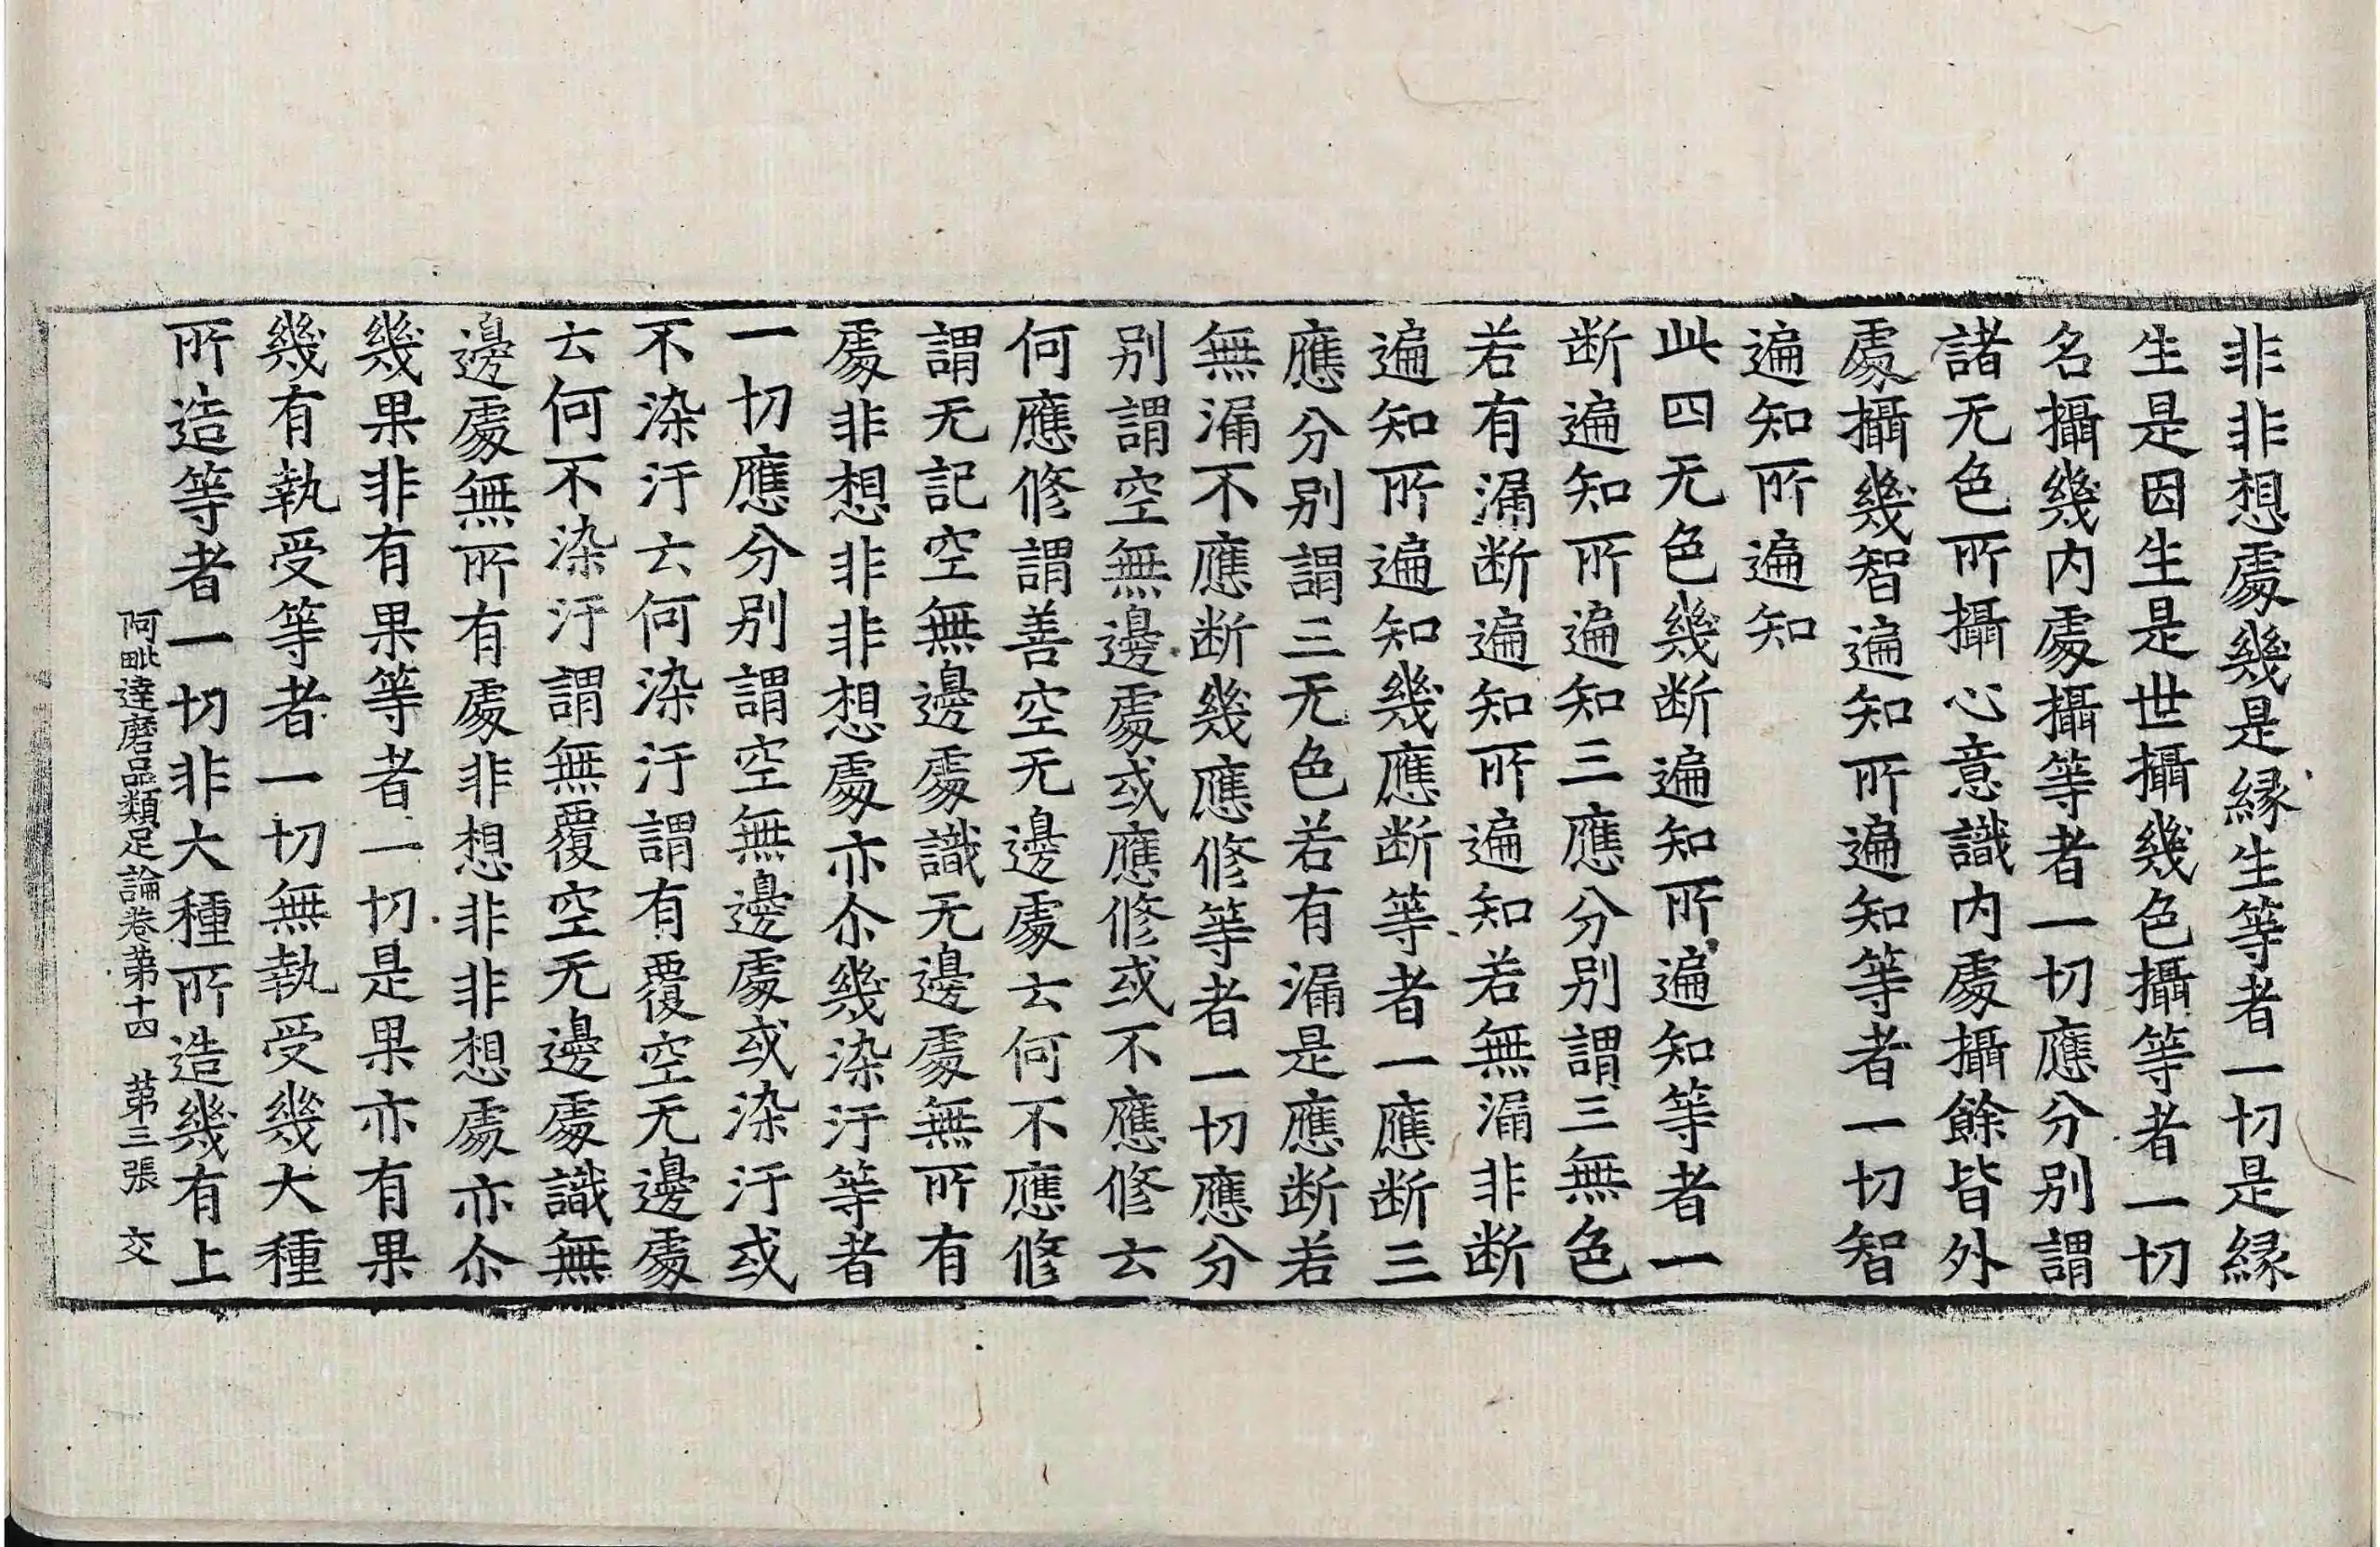 非非想處幾是緣生等者一切是緣
生是因生是世攝幾色攝等者一切
名攝幾内處攝等者一切應分别謂
諸无色所攝心意識内處攝餘皆外
處攝幾智遍知所遍知等者一切智
遍知所遍知
此四无色幾断遍知所遍知等者一
断遍知所遍知三應分别謂三無色
若有漏断遍知所遍知若無漏非断
遍知所遍知幾應断等者一應断三
應分别謂三无色若有漏是應断若
無漏不應断幾應修等者一切應分
别謂空無邊處或應修或不應修云
何應修謂善空无邊處云何不應修
謂无記空無邊處識无邊處無所有
處非想非非想處亦尒幾染汙等者
一切應分别謂空無邊處或染汙或
不染汙云何染汙謂有覆空无邊處
云何不染汙謂無覆空无邊處識無
邊處無所有處非想非非想處亦尒
幾果非有果等者一切是果亦有果
幾有執受等者一切無執受幾大種
所造等者一切非大種所造幾有上
阿毗達磨品類足論卷苐十四 苐三張 交